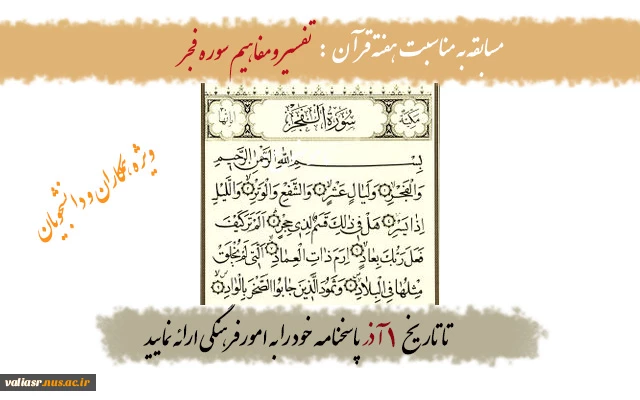 مسابقه به مناسبت هفته قرآن : تفسیر و مفاهیم سوره فجر
مکیة
سورة الفجر
آیاتها
بِسْمِ اللهِ الرَّحْمٰنِ الرَّحِیمِ
وَالْفَجْرِ وَلَيَالٍ عَشْرٍ وَالشَّفْعِ وَالْوَتْرِ وَاللَّيْلِ
إِذَا يَسْرِ هَلْ فِي ذٰلِكَ قَسَمٌ لِذِي حِجْرٍ أَلَمْ تَرَ كَيْفَ
فَعَلَ رَبُّكَ بِعَادٍ إِرَمَ ذَاتِ الْعِمَادِ الَّتِي لَمْ يُخْلَقْ
مِثْلُهَا فِي الْبِلَادِ وَثَمُودَ الَّذِينَ جَابُوا الصَّخْرَ بِالْوَادِ
ویژه همکاران و دانشجویان
تا تاریخ ۱ آذر پاسخنامه خود را به امور فرهنگی ارائه نمایید
valiasr.nus.ac.ir